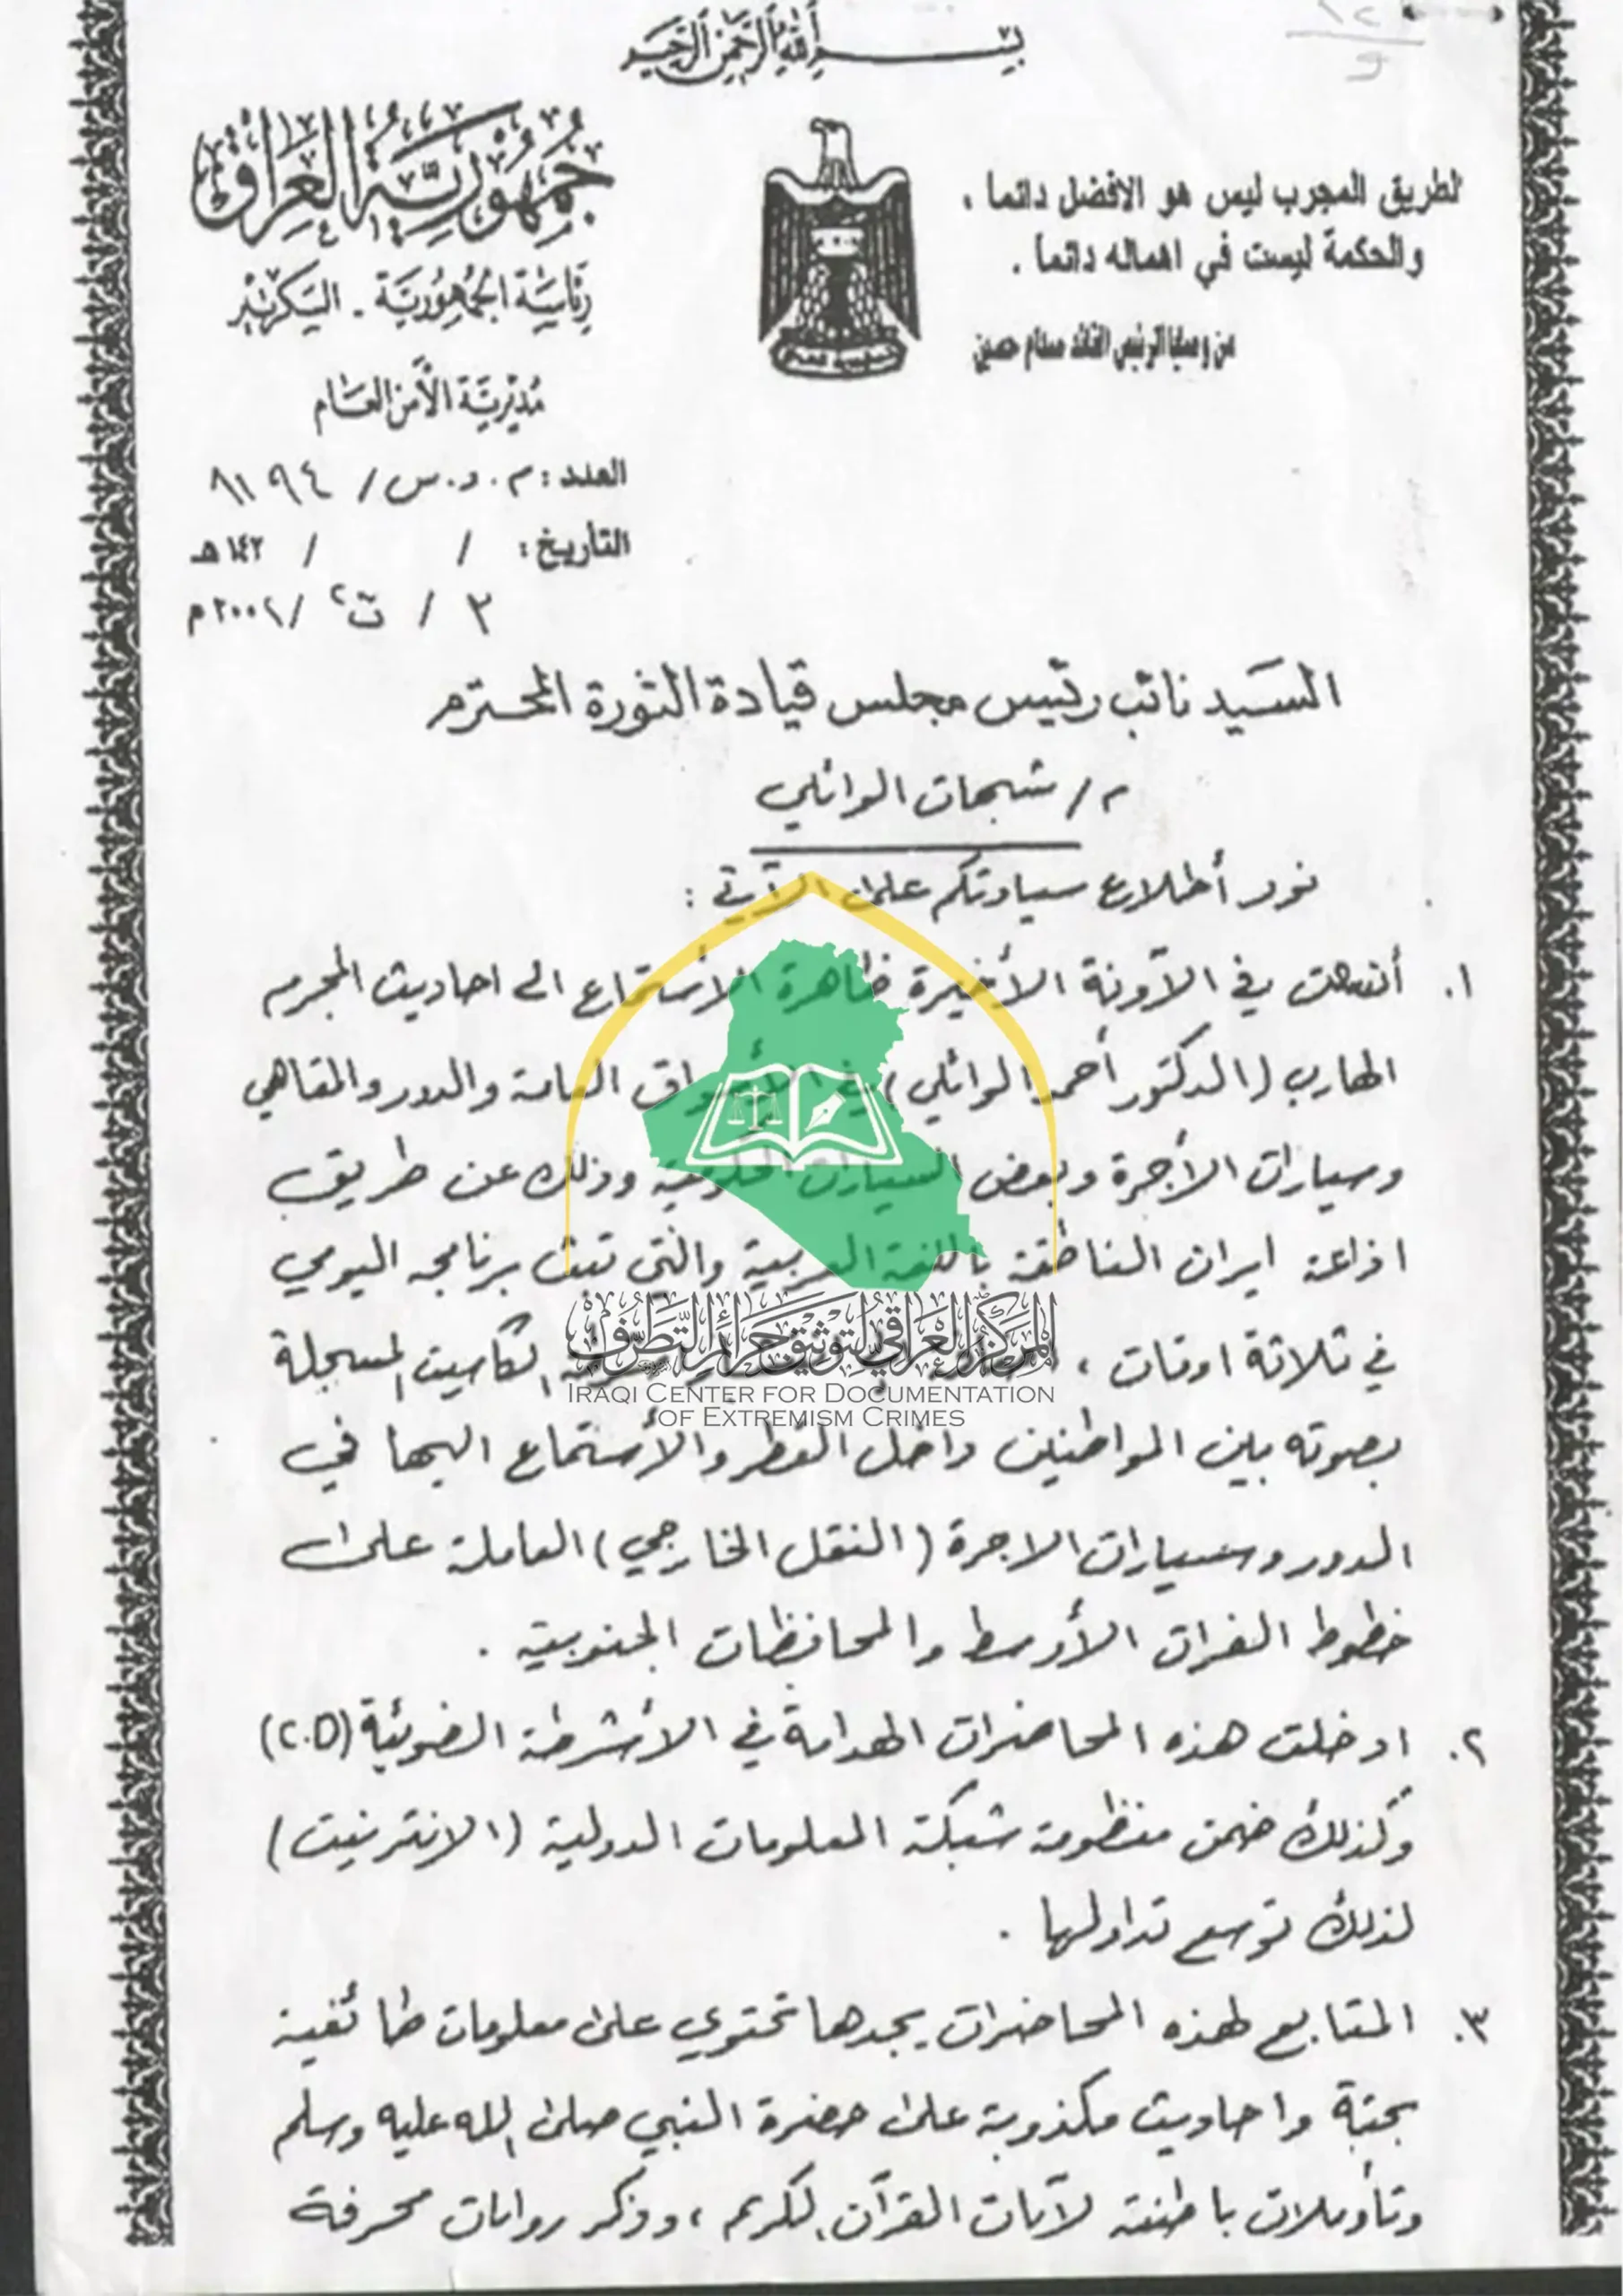 بسم الله الرحمن الرحيم
جمهورية العراق
رئاسة الجمهورية - السكرتير
مديرية الأمن العام
العدد : م . د . س /
التأريخ : / / ١٤٢ هـ
٣ / ت٢ / ٢٠٠١ م
لطريق المجرب ليس هو الافضل دائما ،
والحكمة ليست في اهماله دائماً .
من وصايا الرئيس القائد صدام حسين
السيد نائب رئيس مجلس قيادة الثورة المحترم
م / شبهات الوائلي
نود أطلاع سيادتكم على الآتي :
١. في الآونة الأخيرة ظاهرة الأستماع الى احاديث المجرم
الهارب (الدكتور أحمد الوائلي) في الأسواق العامة والدور والمقاهي
وسيارات الأجرة وبعض السيارات الحكومية وذلك عن طريق
اذاعة ايران الناطقة باللغة العربية والتي تبث برنامجه اليومي
في ثلاثة اوقات ، الكاسيت المسجلة
بصوته بين المواطنين داخل القطر والأستماع اليها في
الدور وسيارات الاجرة (النقل الخارجي) العاملة على
خطوط الفرات الأوسط والمحافظات الجنوبية .
٢. ادخلت هذه المحاضرات الهدامة في الأشرطة الضوئية
وكذلك ضمن منظومة شبكة المعلومات الدولية (الانترنيت)
لذلك توسع تداولها .
٣. المتابع لهذه المحاضرات يجدها تحتوي على معلومات طائفية
واحاديث مكذوبة على حضرة النبي صلى الله عليه وسلم
وتأويلات باطنة لآيات القرآن الكريم ، وذكر روايات محرفة
المركز العراقي لتوثيق جرائم التطرف
IRAQI CENTER FOR DOCUMENTATION
OF EXTREMISM CRIMES